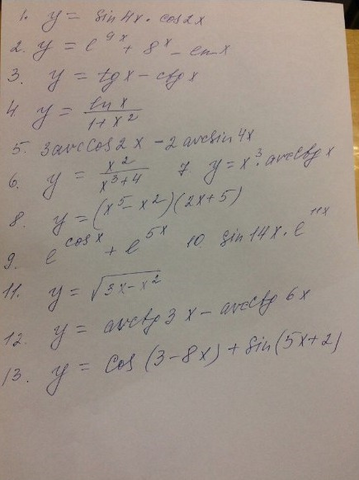 1. y = sin 4x · cos 2x
2. y = e^9x + 8^x - ln x
3. y = tg x - ctg x
4. y = ln x / 1+x²
5. 3 arccos 2x - 2 arcsin 4x
6. y = x² / x³+4 7 y = x³ · arcctg x
8. y = (x⁵ - x²)(2x+5)
9. e^cos x + e^5x 10 sin 14x · e^11x
11. y = √3x - x²
12. y = arctg 3x - arcctg 6x
13. y = cos (3-8x) + sin (5x+2)